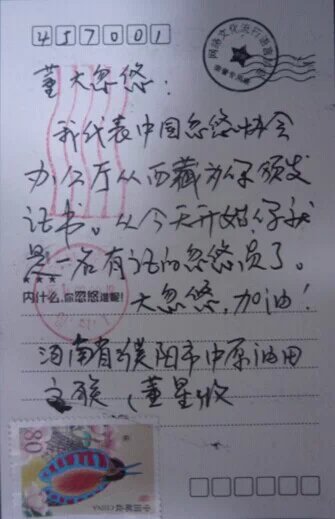 457001
网络文化流行语言
董大忽悠：
我代表中国忽悠协会
办公厅从西藏为你颁发
证书。从今天开始你就
是一名有证的忽悠员了。
内什么,你忽悠谁呢!
大忽悠，加油！
河南省濮阳市中原油田
文 董星收
80
中国邮政 CHINA